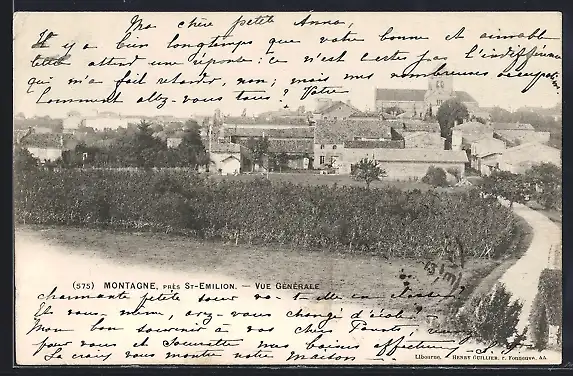 Ma chère petite Anna,
Il y a bien longtemps que votre bonne et aimable
lettre attend une réponse : ce n'est certes pas l'indifférence
qui m'a fait retarder, non ; mais mes nombreuses occupations
Comment allez-vous tous ? Votre
(575) MONTAGNE, PRÈS ST-EMILION. — VUE GÉNÉRALE
charmante petite sœur va-t-elle en classe ?
Et vous même, avez-vous changé d'école ?
Mon bon souvenir à vos chers Parents,
pour vous et Jeannette mes baisers affectueux,
La croix vous montre notre maison.
Libourne. HENRY GUILLIER, r. Fonneuve, 44